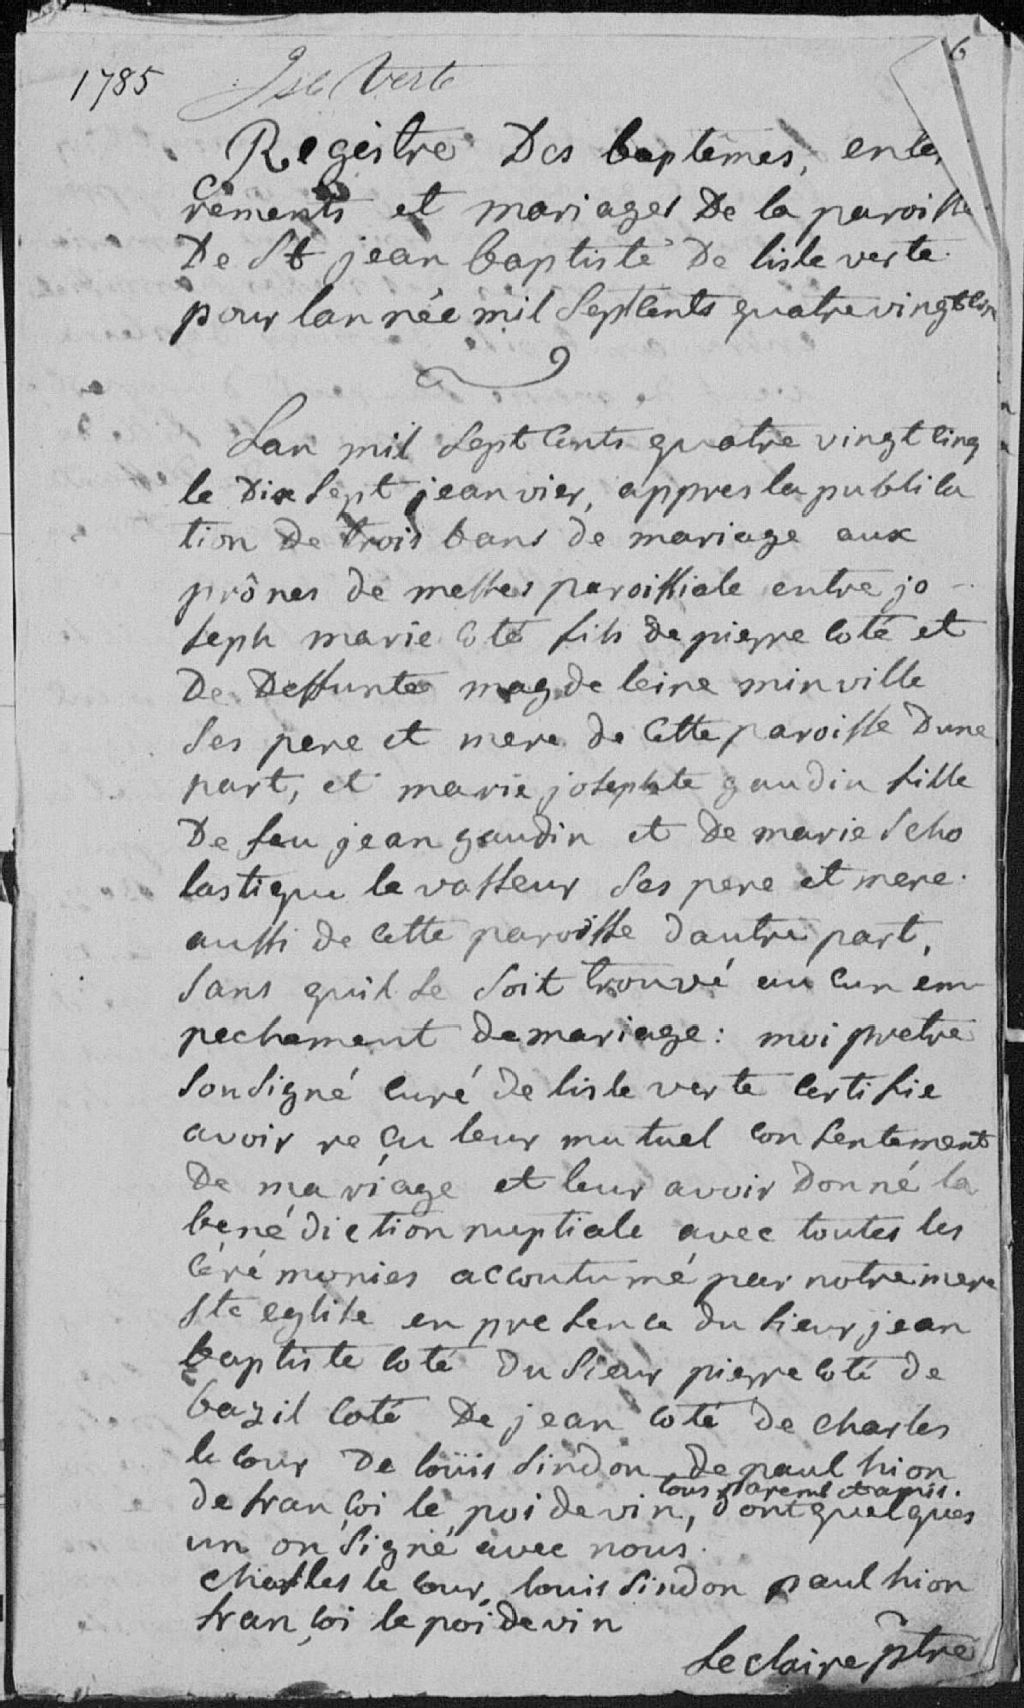 6
1785 Isle Verte
Registre Des baptêmes, enter
rements et mariages De la paroisse
De St jean baptiste De lisle verte
pour lannée mil Septcents quatrevingtcinq
Lan mil Septcents quatre vingt cinq
le Dix Sept jeanvier, appres la publica
tion De trois bans de mariage aux
prônes de messes paroissiale entre jo-
seph marie coté fils de pierre coté et
De Deffunte magdeleine minville
Ses pere et mere de Cette paroisse Dune
part, et marie josephte gaudin fille
De feu jean gaudin et De marie Scho
lastique le vasseur Ses pere et mere
aussi de Cette paroisse dautre part,
Sans quil Se Soit trouvé aucun em-
pechement de mariage : moi pretre
Sousigné Curé de lisle verte Certifie
avoir reçu leur mutuel consentement
De mariage et leur avoir Donné la
benédiction nuptiale avec toutes les
Cérémonies accoutumé par notre mere
Ste eglise en presence du sieur jean
baptiste coté Du Sieur pierre coté de
bazil Coté De jean coté de charles
le cour De louis sindon de paul hion
tous parent et amis.
de françoi le poidevin, dont quelques
un on Signé avec nous.
charlles le cour, louis sindon paul hion
françoi le poidevin
Leclaire ptre